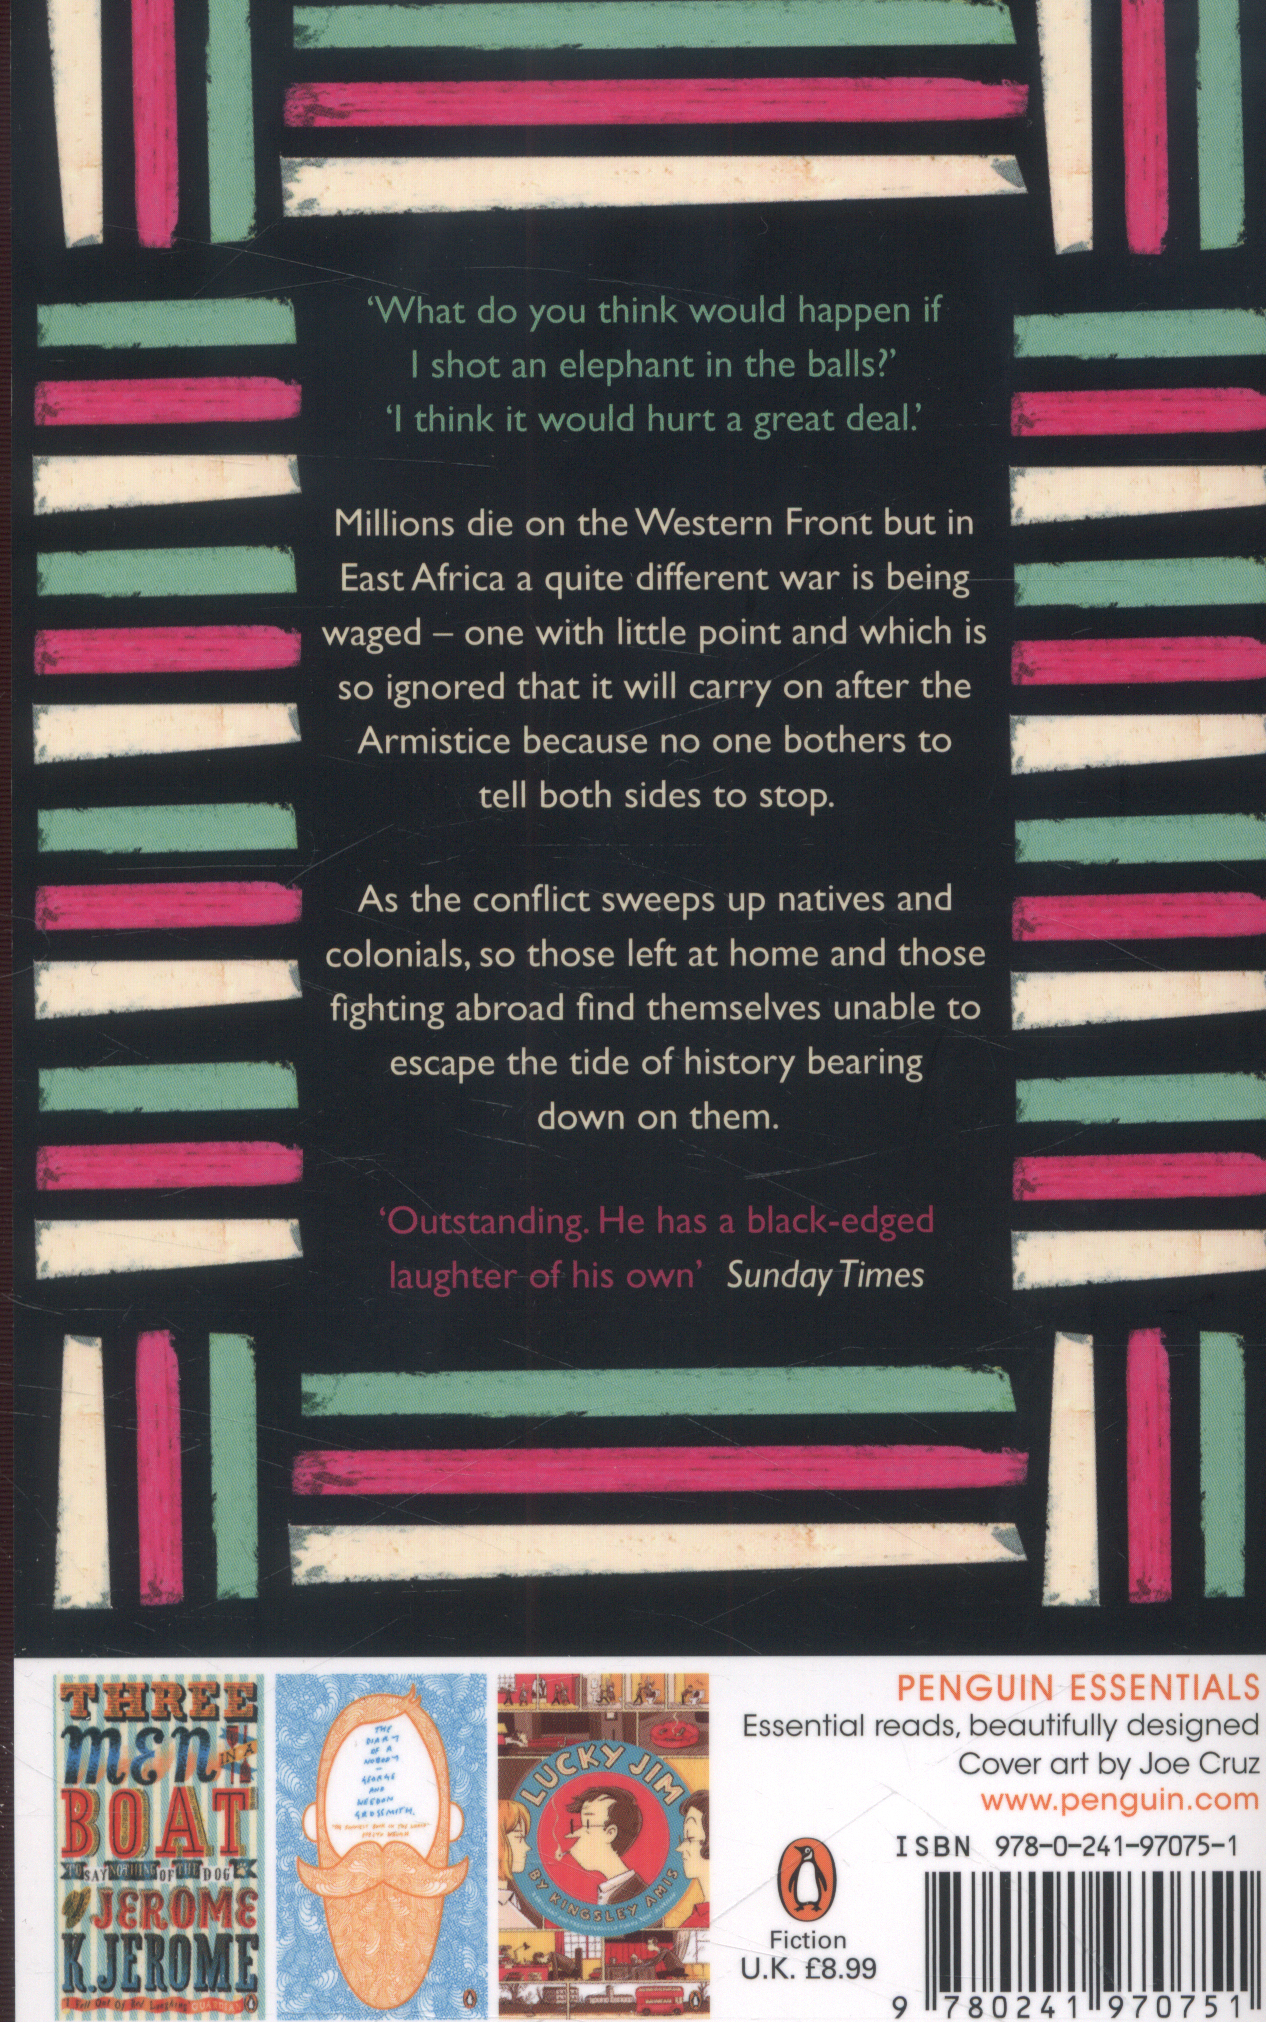 ‘What do you think would happen if
I shot an elephant in the balls?’
‘I think it would hurt a great deal.’
Millions die on the Western Front but in
East Africa a quite different war is being
waged – one with little point and which is
so ignored that it will carry on after the
Armistice because no one bothers to
tell both sides to stop.
As the conflict sweeps up natives and
colonials, so those left at home and those
fighting abroad find themselves unable to
escape the tide of history bearing
down on them.
‘Outstanding. He has a black-edged
laughter of his own’ Sunday Times
THREE
MEN
IN A
BOAT
TO SAY NOTHING OF THE DOG
JEROME
K. JEROME
THE
DIARY
OF A
NOBODY
GEORGE
AND
WEEDON
GROSSMITH.
LUCKY JIM
BY KINGSLEY AMIS
PENGUIN ESSENTIALS
Essential reads, beautifully designed
Cover art by Joe Cruz
www.penguin.com
Fiction
U.K. £8.99
ISBN 978-0-241-97075-1
9 780241 970751